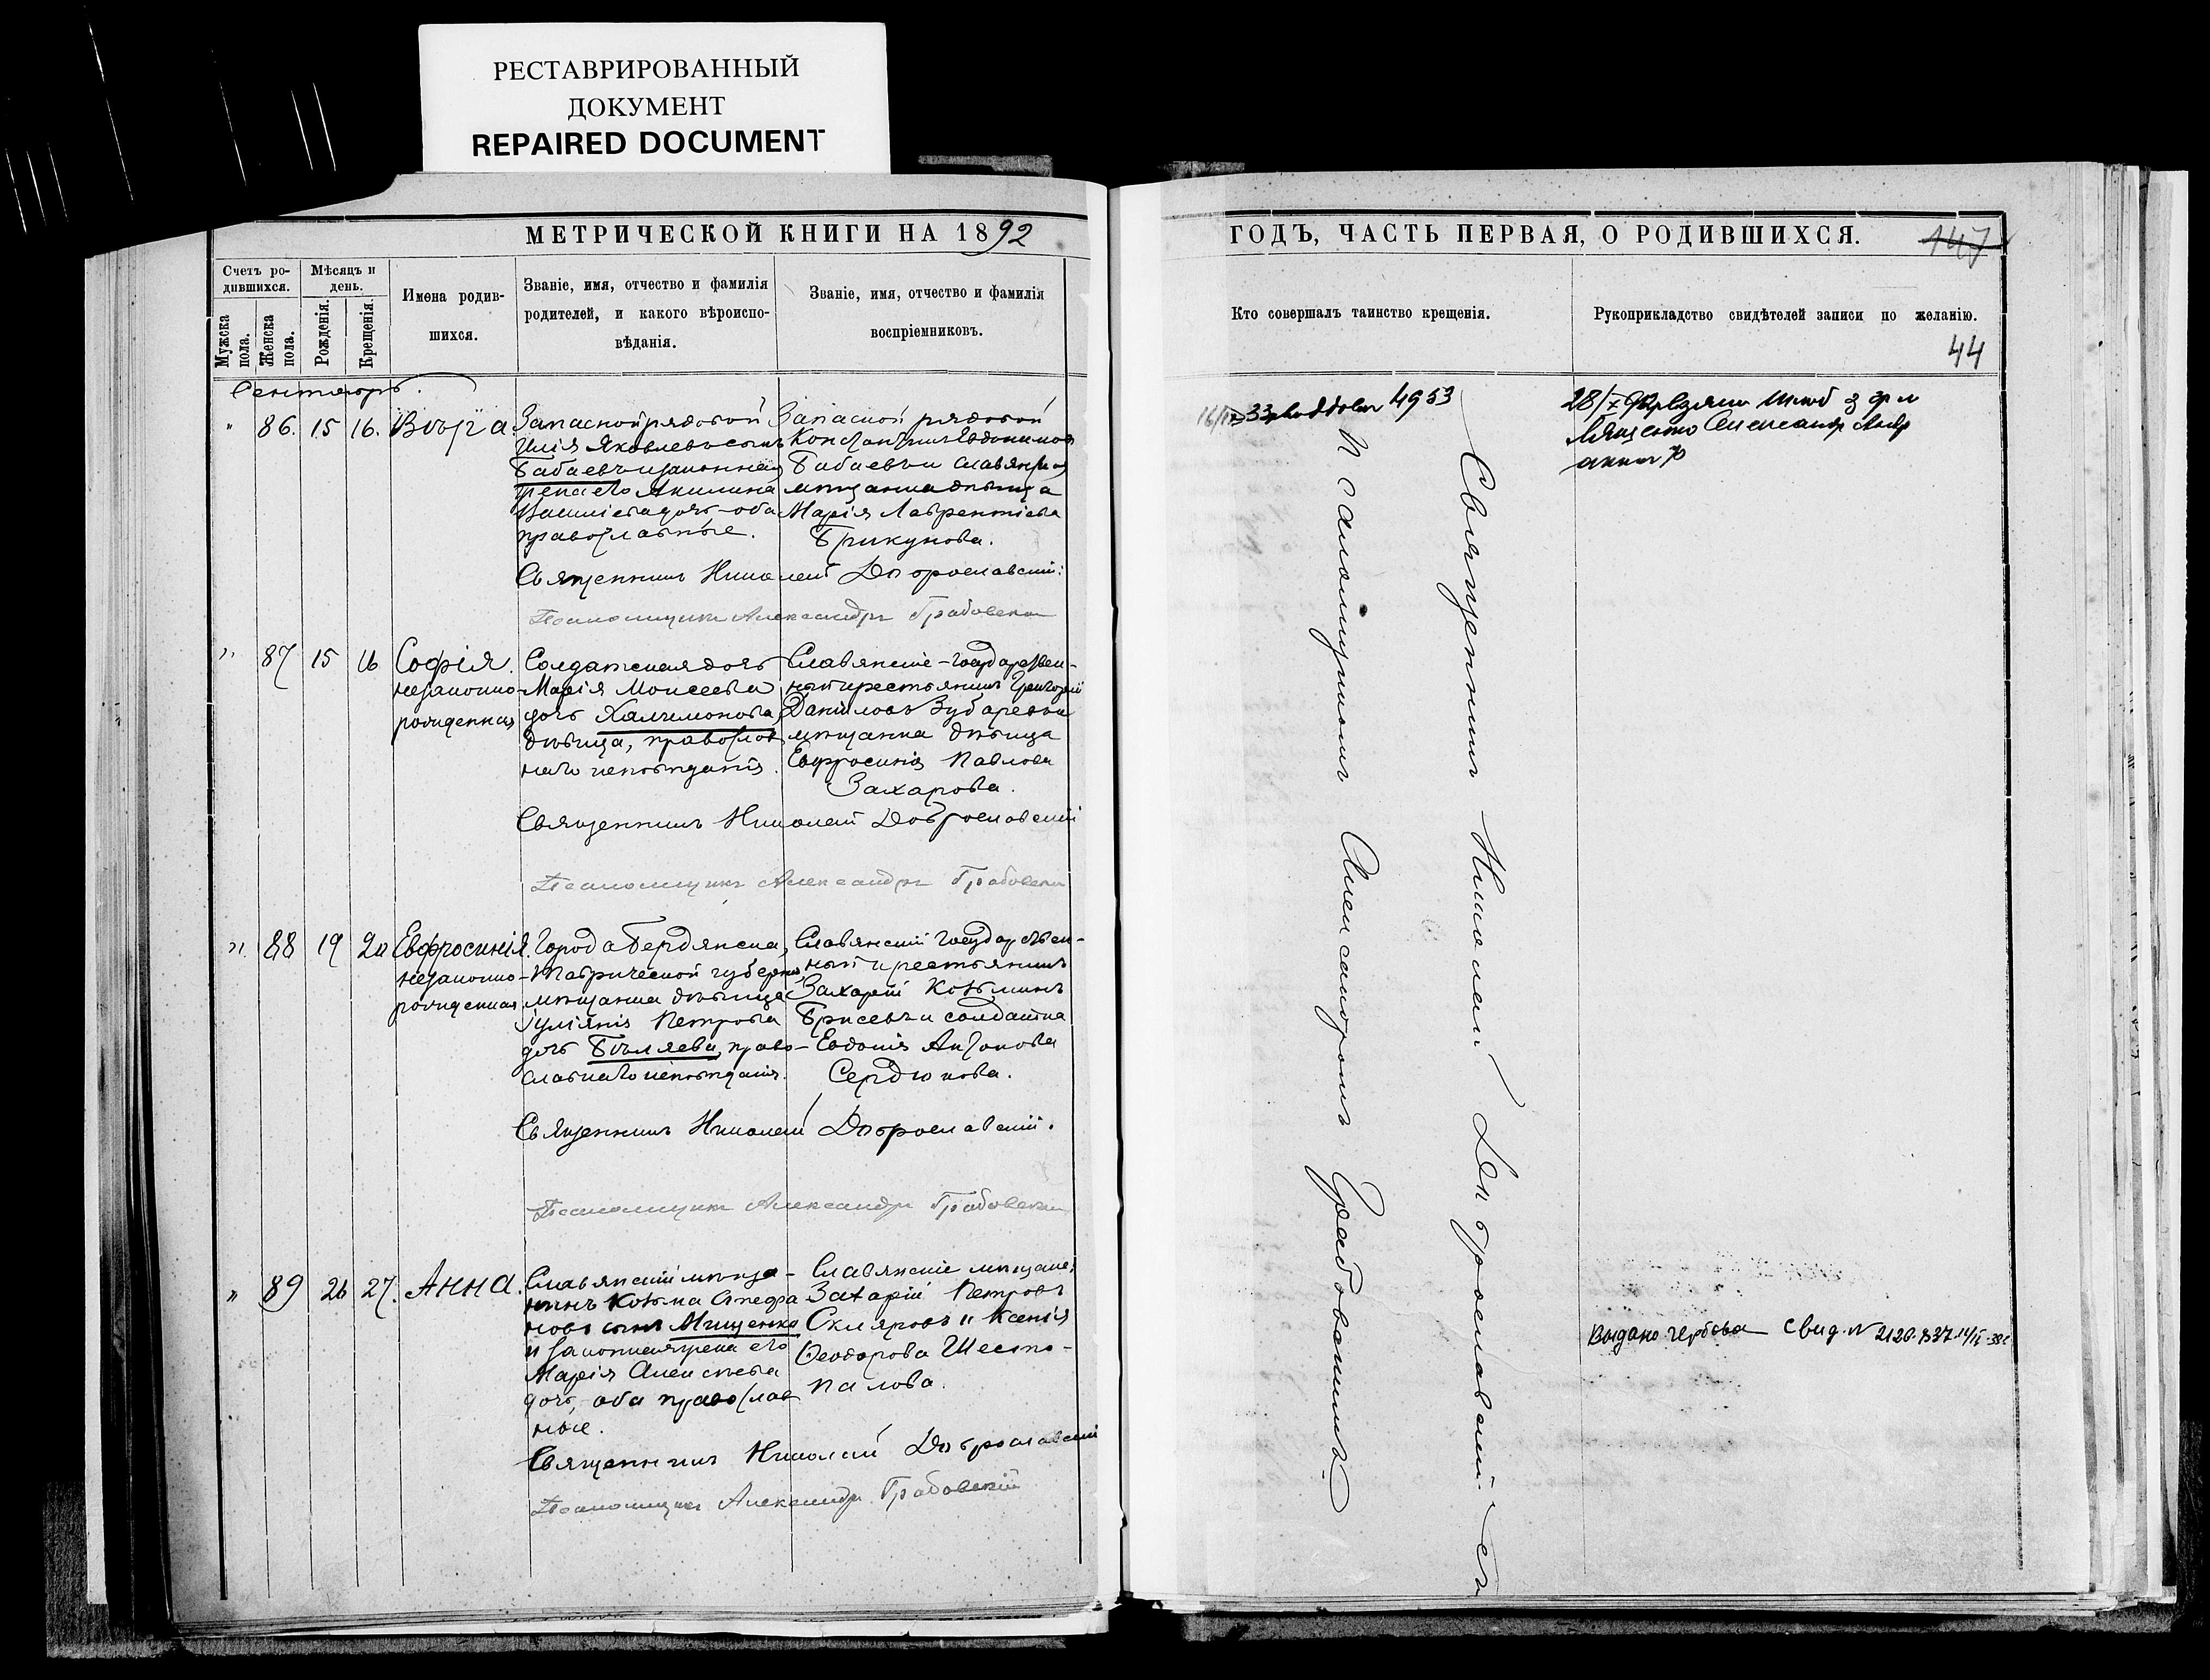 РЕСТАВРИРОВАННЫЙ
ДОКУМЕНТ
REPAIRED DOCUMENT
МЕТРИЧЕСКОЙ КНИГИ НА 1892
Счетъ ро-
дившихся.
Мужска пола.
Женска пола.
Мѣсяцъ и
день.
Рожденія.
Крещенія.
Имена родив-
шихся.
Званіе, имя, отчество и фамилія
родителей, и какого вѣроиспо-
вѣданія.
Званіе, имя, отчество и фамилія
воспріемниковъ.
Сентябрь.
" 86. 15 16. Вѣра.
Запасной рядовой
Илія Яковлевъ сынъ
Бабаевъ и законная
жена его Акилина
Василіева дочь оба
православные.
Запасной рядовой
Константинъ Евдокимовъ
Бабаевъ и славянская
мѣщанка дѣвица
Марія Лаврентіева
Брикунова.
Священникъ Николай Доброславскій.
Псаломщикъ Александръ Грабовскій
" 87 15 16 Софія.
незаконно-
рожденная
Солдатская дочь
Марія Моисеева
дочь Халимонова,
дѣвица, православ
наго исповѣданія.
Славянскіе - государствен-
ный крестьянинъ Григорій
Даниловъ Зубаревъ и
мѣщанка дѣвица
Евфросинія Павлова
Захарова.
Священникъ Николай Доброславскій
Псаломщикъ Александръ Грабовскій
" 88 19 20 Евфросинія.
незаконно-
рожденная
Города Бердянска,
Таврической губерніи,
мѣщанка дѣвица
Іуліанія Петрова
дочь Бѣляева, право-
славнаго исповѣданія.
Славянскій государствен-
ный крестьянинъ
Захарій Козьминъ
Брисевъ и солдатка
Евдокія Антонова
Сердюкова.
Священникъ Николай Доброславскій.
Псаломщикъ Александръ Грабовскій
" 89 26 27. Анна.
Славянскій мѣща-
нинъ Козьма Стефа
новъ сынъ Мищенко
и законная жена его
Марія Алексѣева
дочь, оба православ
ные.
Славянскіе мѣщане:
Захарій Петровъ
Скляровъ и Ксенія
Ѳеодорова Шесто-
палова.
Священникъ Николай Доброславскій
Псаломщикъ Александръ Грабовскій
ГОДЪ, ЧАСТЬ ПЕРВАЯ, О РОДИВШИХСЯ.
147
Кто совершалъ таинство крещенія.
Рукоприкладство свидѣтелей записи по желанію.
44
4953
Александр
Священникъ Николай Доброславскій съ
Псаломщикомъ Александромъ Грабовскимъ.
Выдано Свид. №